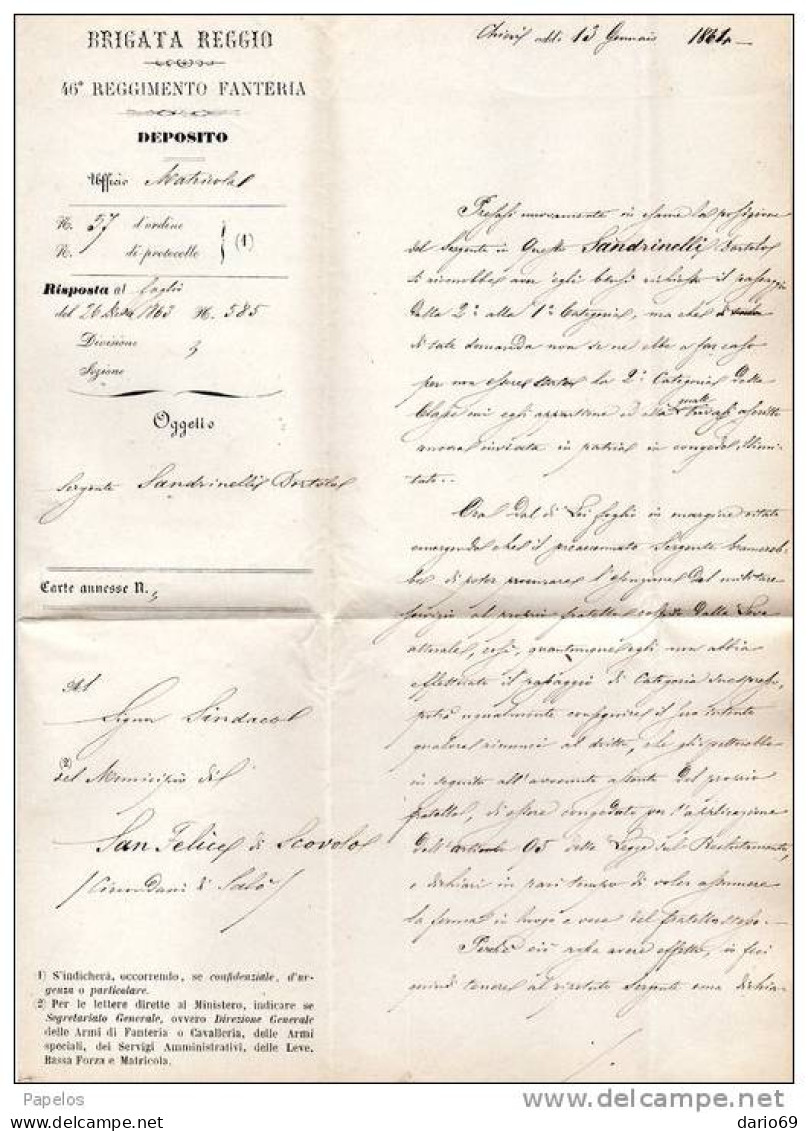 BRIGATA REGGIO
46° REGGIMENTO FANTERIA
DEPOSITO
Ufficio Matricola
N. 57 d'ordine
N. di protocollo (1)
Risposta al foglio
del 26 1863 N. 585
Divisione 3
Sezione
Oggetto
Sergente Sandrinelli Bortolo
Carte annesse N.
Al
Signor Sindaco
(2)
del Municipio di
San Felice di Scovolo
/Circondario di Salò/
1) S'indicherà, occorrendo, se confidenziale, d'ur-
genza o particolare.
2) Per le lettere dirette al Ministero, indicare se
Segretariato Generale, ovvero Direzione Generale
delle Armi di Fanteria o Cavalleria, delle Armi
speciali, dei Servigi Amministrativi, delle Leve,
Bassa Forza e Matricola.
addì 13 Gennaio 1864
Presasi nuovamente in esame la posizione
del Sergente in Sandrinelli Bortolo
si rinobbe aver egli richiesto il passaggio
dalla 2a alla 1a Categoria, ma che
di tale domanda non se ne ebbe a far caso
per non essere la 2a Categoria della
Classe cui egli appartiene ed alla quale trovasi ascritto
ancora inviata in patria in congedo illimi-
tato.
Ora dal di Lei foglio in margine citato
emergendo che il preaccennato Sergente bramereb-
be di poter procurare l'esenzione dal militare
servizio al proprio fratello dalla Leva
attuale, così, quantunque egli non abbia
effettuato il passaggio di Categoria
potrà ugualmente conseguire il suo intento
qualora rinunci al dritto, che gli spetterebbe
in seguito all' del proprio
fratello, di essere congedato per l'applicazione
dell'articolo 95 della Legge sul Reclutamento,
e dichiari in pari tempo di voler assumere
la ferma in luogo e vece del fratello stesso.
Perchè ciò avere effetto, si fa
quindi tenere al Sergente una dichia-
Papelos
delcampe.net
dario69